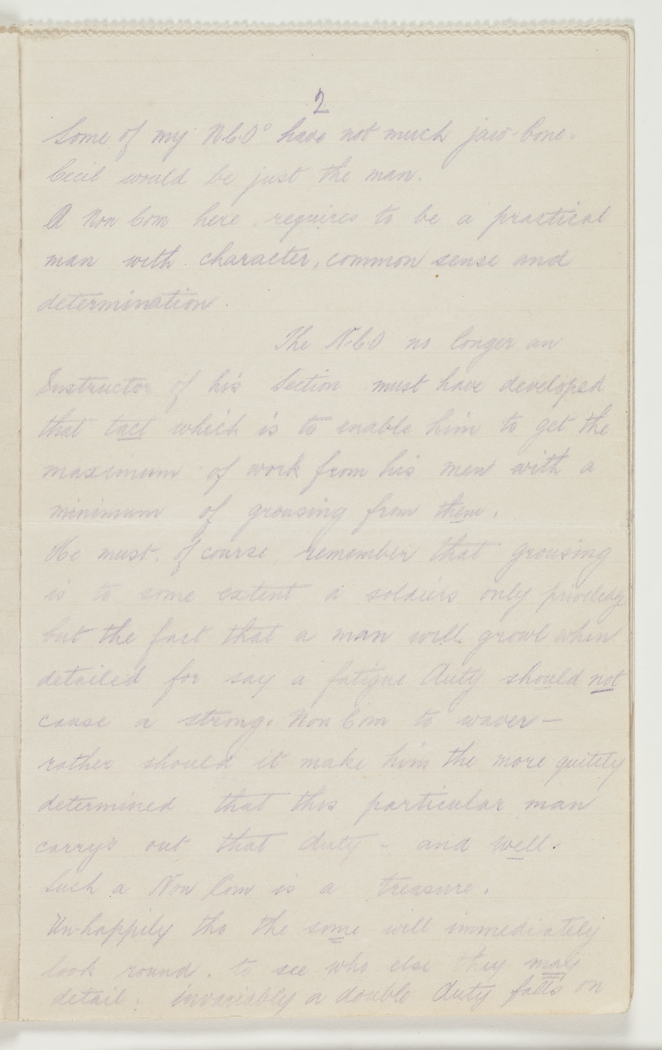 2
Some of my NCOs have not much jaw-bone.
Cecil would be just the man.
A Non Com here requires to be a practical
man with character, common sense and
determination.
The NCO no longer an
Instructor of his Section must have developed
that tact which is to enable him to get the
maximum of work from his men with a
minimum of grousing from them.
He must, of course, remember that grousing
is to some extent a soldiers only
but the fact that a man will growl when
detailed for say a fatigue duty should not
cause a strong Non Com to waver —
rather should it make him the more quitely
determined that this particular man
carrys out that duty - and well.
Such a Non Com is a treasure.
Un-happily tho the some will immediately
look round. to see who else they may
detail. invariably a double duty falls on